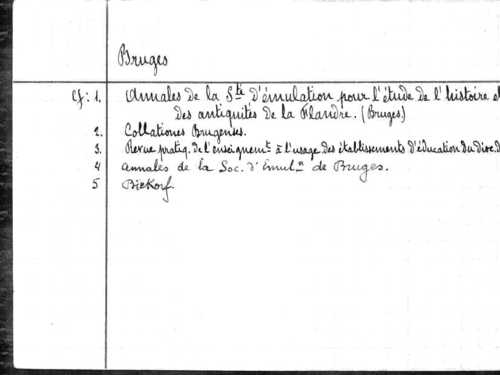 Bruges
cf: 1. Annales de la Sté d'émulation pour l'étude de l'histoire et
des antiquités de la Flandre. (Bruges)
2. Collationes Brugenses.
3. Revue pratiq. de l'enseignemt à l'usage des établissements d'éducation du dioc. d
4 Annales de la Soc. d'Émuln de Bruges.
5 Biekorf.